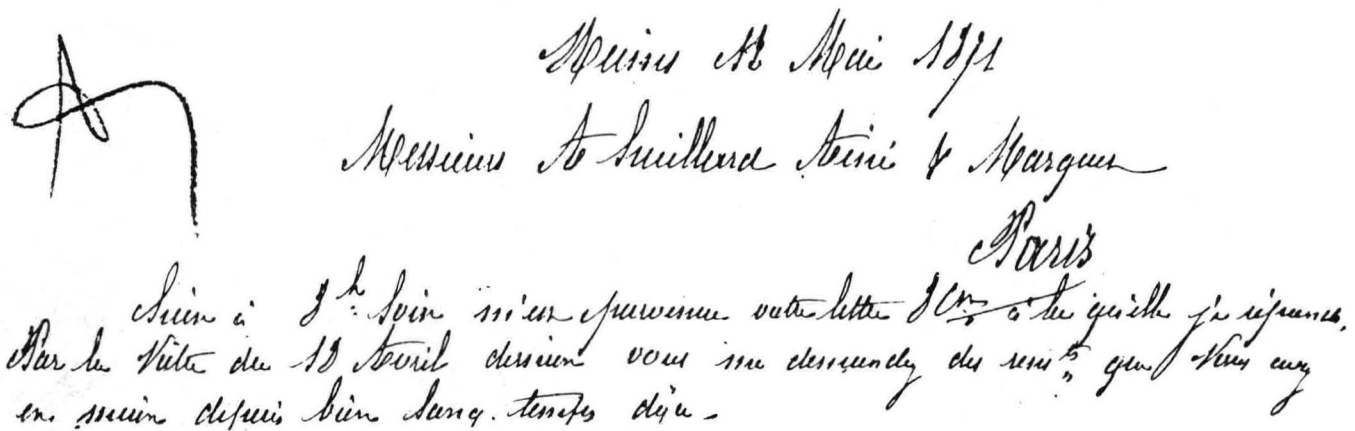 12 Mai 1871
Messieurs A Guillard Ainé & Marquer
Paris
à 8h. Soir m'est parvenue votre lettre à la quelle je réponds.
Par la Vôtre du 12 Avril dernier vous me demandez des rens.ts que Vous avez
en main depuis bien long-temps déja.